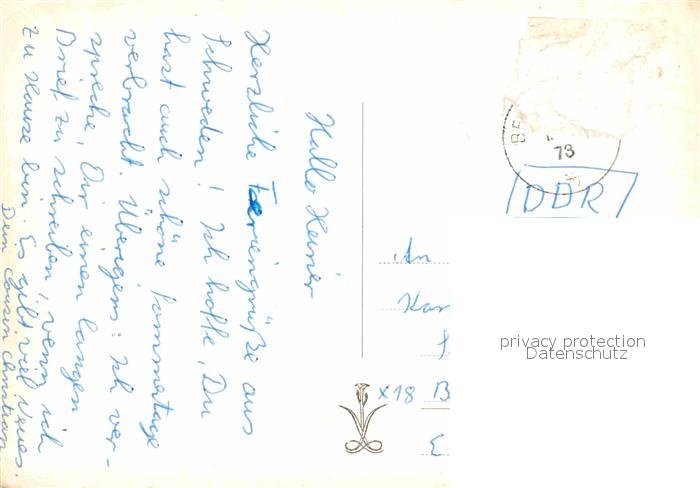 Hallo Heiner
Herzliche Feriengrüße aus
Schweden! Ich hoffe, Du
hast auch schöne Sommertage
verbracht. Übrigens: Ich ver-
spreche, Dir einen langen
Brief zu schreiben, wenn ich
zu Hause bin. Es gibt viel Neues.
Dein Cousin Christian
73
DDR
An
x18 B
privacy protection
Datenschutz